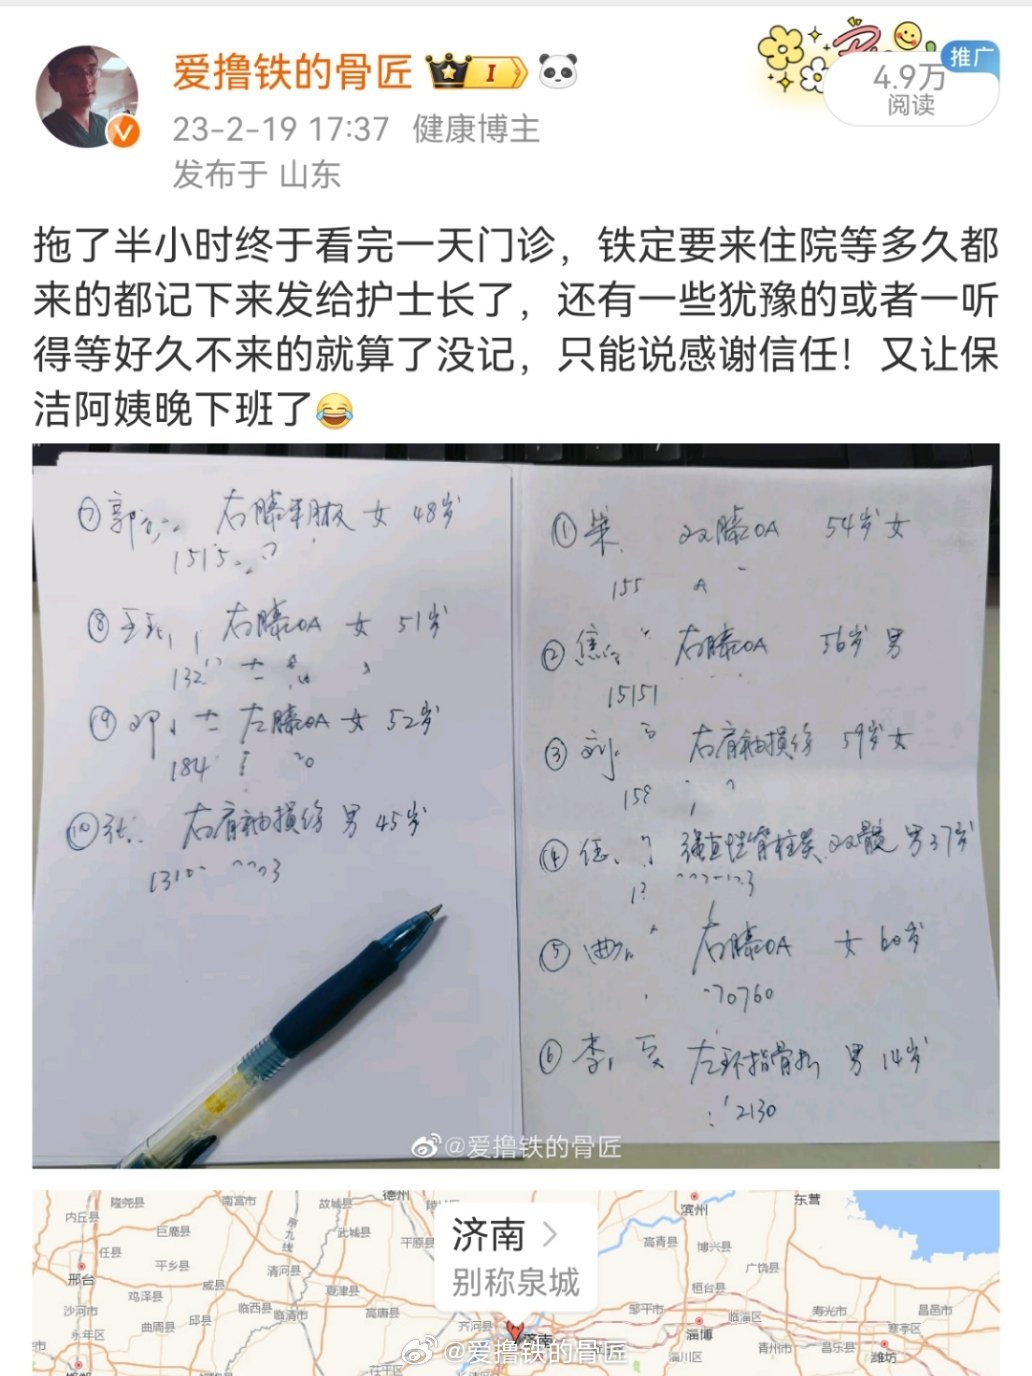 爱撸铁的骨匠
推广
4.9万
阅读
23-2-19 17:37 健康博主
发布于 山东
拖了半小时终于看完一天门诊，铁定要来住院等多久都
来的都记下来发给护士长了，还有一些犹豫的或者一听
得等好久不来的就算了没记，只能说感谢信任！又让保
洁阿姨晚下班了😂
⑦ 郭 右膝半月板 女 48岁
1515
⑧ 王 右膝OA 女 51岁
132
⑨ 邓 左膝OA 女 52岁
184
⑩ 张 右肩袖损伤 男 45岁
① 柴 双膝OA 54岁 女
155
② 焦 右膝OA 56岁 男
15151
③ 刘 右肩袖损伤 59岁 女
159
④ 任 强直性脊柱炎 双髋 男 37岁
⑤ 曲 右膝OA 女 60岁
70760
⑥ 李 左环指骨折 男 14岁
2130
@爱撸铁的骨匠
济南
别称泉城
隆尧县
南宫市
故城县
德州
滨州
东营
内丘县
巨鹿县
京九线
武城县
平原县
高青县
博兴县
任县
平乡县
清河县
广饶县
邢台
威县
夏津县
桓台县
鸡泽县
临西县
临清市
高唐县
邹平市
临淄区
寿光市
昌邑市
沙河市
曲周县
邱县
齐河县
济南
淄博
寒亭区
永年区
青州市
昌乐县
潍坊
茌平区
淄川区
@爱撸铁的骨匠